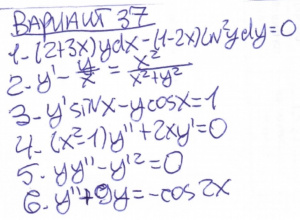 ВАРИАНТ 37
1-(2+3x)ydx-(1-2x)ln²ydy=0
2-y'-y/x=x²/(x²+y²)
3-y'sinx-ycosx=1
4-(x²-1)y''+2xy'=0
5-yy''-y'²=0
6-y''+9y=-cos2x